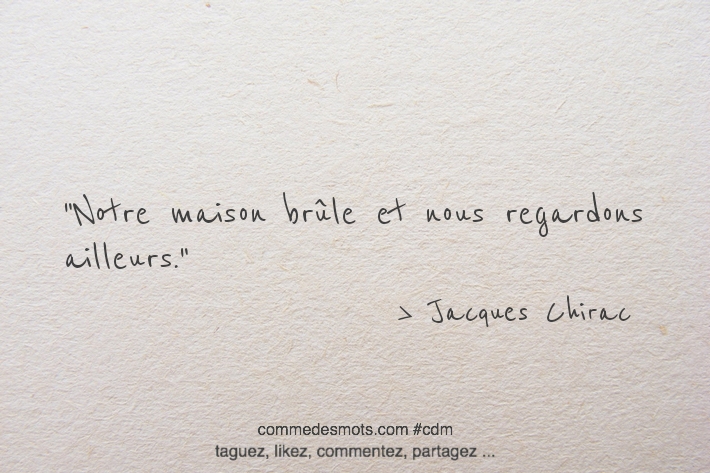 "Notre maison brûle et nous regardons
ailleurs."
> Jacques Chirac
commedesmots.com #cdm
taguez, likez, commentez, partagez ...